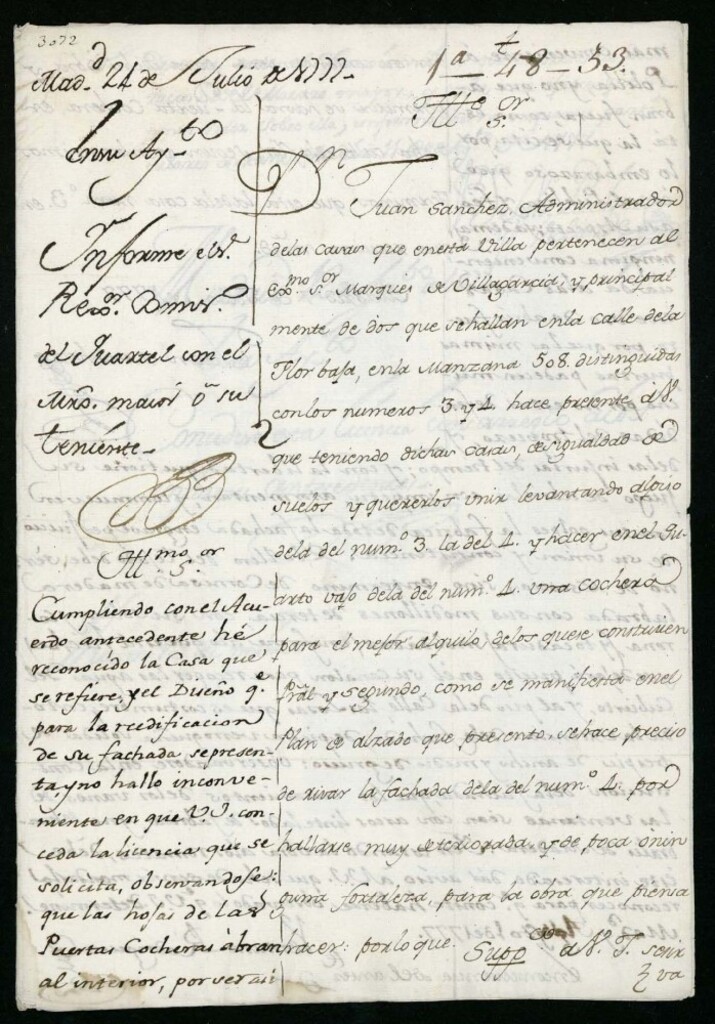 3072
Mad.d 24 de Julio de 1777.
1a 48 - 53.
En su Ay.to
Informe el S.r
Re.or Comis.
del Quartel con el
Mro. maior ó su
teniente.
Ill.mo S.or
Cumpliendo con el Acu-
erdo antecedente hé
reconocido la Casa que
se refiere, y el Diseño q.e
para la redificacion
de su fachada se presen-
ta y no hallo inconve-
niente en que V.I. con-
ceda la licencia que se
solicita, observandose:
que las hojas de las
Puertas Cocheras abran
al interior, por ver asi
Ill.e S.or
Dn Juan Sanchez, Administrador
delas casas que enesta Villa pertenecen al
exmo S.or Marques de Villagarcia, y principal
mente de dos que sehallan enla calle dela
Flor baja, enla Manzana 508. distinguidas
conlos numeros 3. y 4. hace presente à V.
que teniendo dichas casas, desigualdad de
suelos y quererlos unir levantando al piso
dela del num.o 3. la del 4. y hacer en el Qu-
arto vajo dela del num.o 4. una cochera
para el mejor alquilo delos quese constituien
pral y segundo, como se manifiesta enel
Plan de alzado que presento, sehace preciso
derivar la fachada dela del num.o 4. por
hallarse muy deteriorada, y de poca ó nin
guna fortaleza, para la obra que piensa
hacer: por lo que Supp.co à V. I. se sir
va